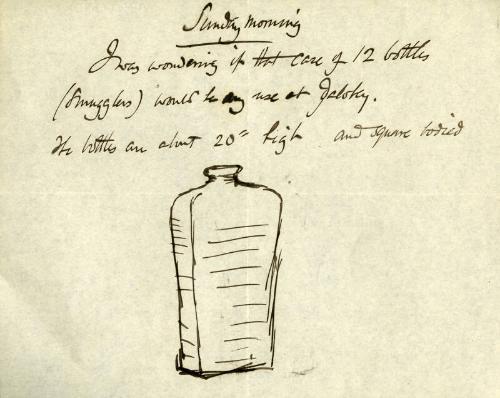 Sunday morning
I was wondering if that case of 12 bottles
(smugglers) would be any use at
The bottles are about 20" high and square bodied